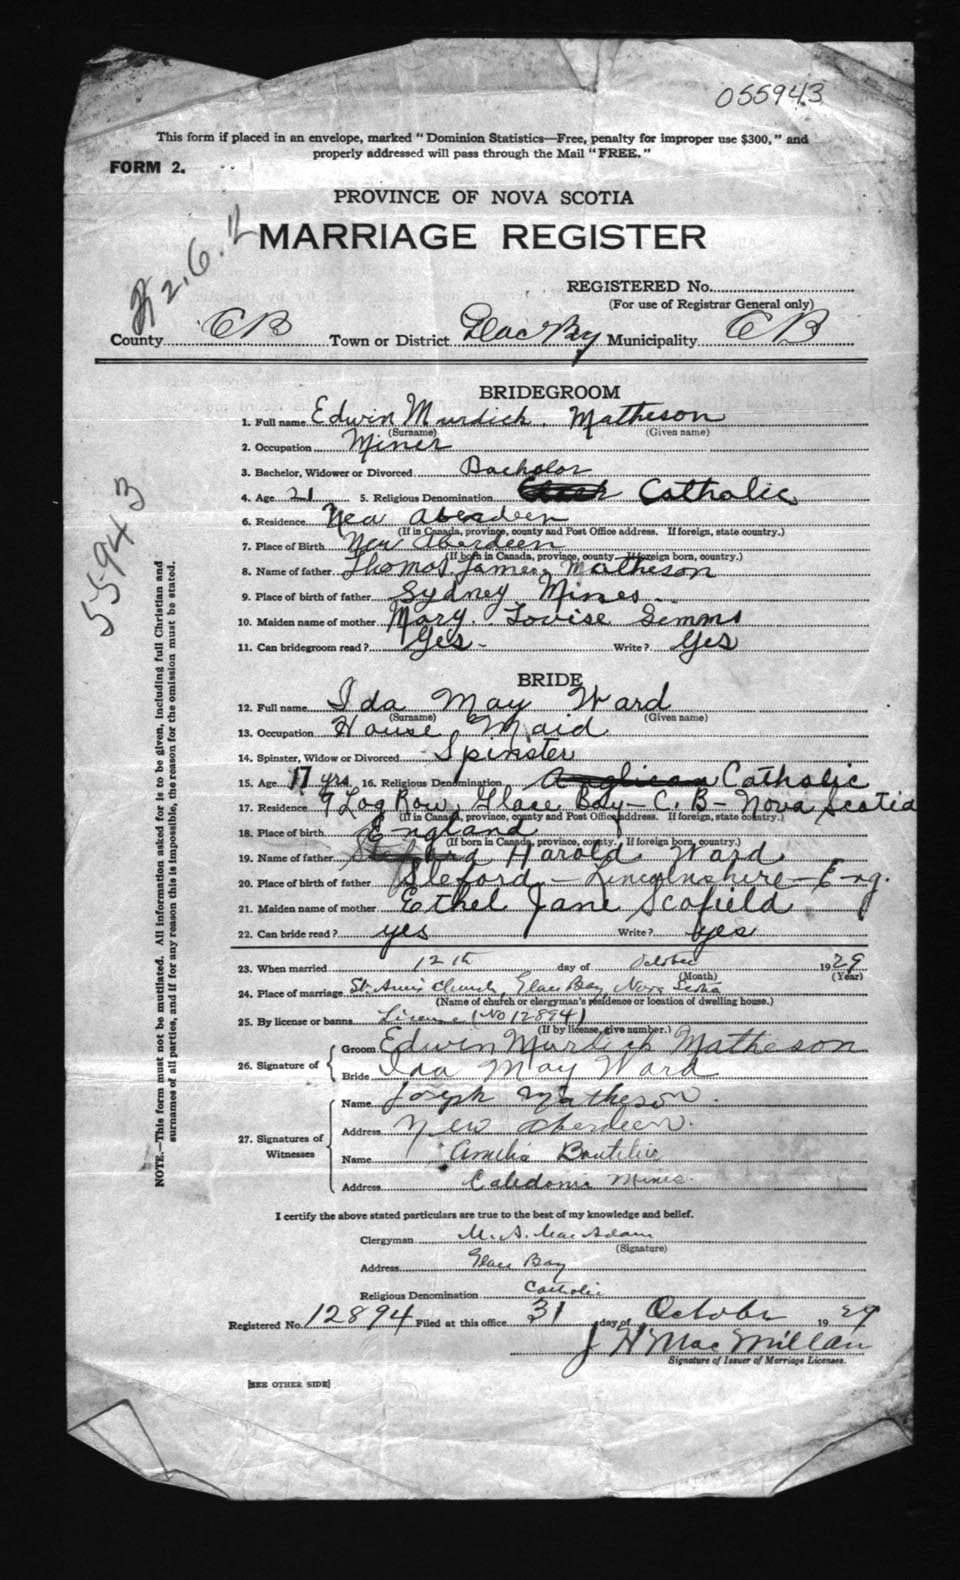 055943
This form if placed in an envelope, marked "Dominion Statistics—Free, penalty for improper use $300," and
properly addressed will pass through the Mail "FREE."
FORM 2.
PROVINCE OF NOVA SCOTIA
2.6.12
MARRIAGE REGISTER
REGISTERED No.
(For use of Registrar General only)
County CB Town or District Glace Bay Municipality CB
BRIDEGROOM
1. Full name Edwin Murdich Matheson
(Surname) (Given name)
2. Occupation Miner
3. Bachelor, Widower or Divorced Bachelor
4. Age 21 5. Religious Denomination Catholic
6. Residence New Aberdeen
(If in Canada, province, county and Post Office address. If foreign, state country.)
7. Place of Birth New Aberdeen
(If born in Canada, province, county. If foreign born, country.)
8. Name of father Thomas James Matheson
9. Place of birth of father Sydney Mines
10. Maiden name of mother Mary Lovise Simms
11. Can bridegroom read? Yes- Write? Yes
55943
NOTE.—This form must not be mutilated. All information asked for is to be given, including full Christian and
surnames of all parties, and if for any reason this is impossible, the reason for the omission must be stated.
BRIDE
12. Full name Ida May Ward
(Surname) (Given name)
13. Occupation House Maid
14. Spinster, Widow or Divorced Spinster
15. Age 17 yrs. 16. Religious Denomination Anglican Catholic
17. Residence 9 Log Row, Glace Bay - C.B - Nova Scotia
(If in Canada, province, county and Post Office address. If foreign, state country.)
18. Place of birth England
(If born in Canada, province, county. If foreign born, country.)
19. Name of father Harold Ward
20. Place of birth of father Sleford - Lincolnshire - Eng.
21. Maiden name of mother Ethel Jane Scofield
22. Can bride read? yes Write? yes
23. When married 12th day of October 1929
(Month) (Year)
24. Place of marriage St. Ann's Church, Glace Bay, Nova Scotia
(Name of church or clergyman's residence or location of dwelling house.)
25. By license or banns License (No 12894)
(If by license, give number.)
26. Signature of Groom Edwin Murdich Matheson
Bride Ida May Ward
27. Signatures of Witnesses Name Joseph Matheson
Address New Aberdeen
Name Amelia Boutilier
Address Caledonia Mines
I certify the above stated particulars are true to the best of my knowledge and belief.
Clergyman M. A. MacAdam
(Signature)
Address Glace Bay
Religious Denomination Catholic
Registered No. 12894 Filed at this office 31 day of October 1929
J H MacMillan
Signature of Issuer of Marriage Licenses.
[SEE OTHER SIDE]